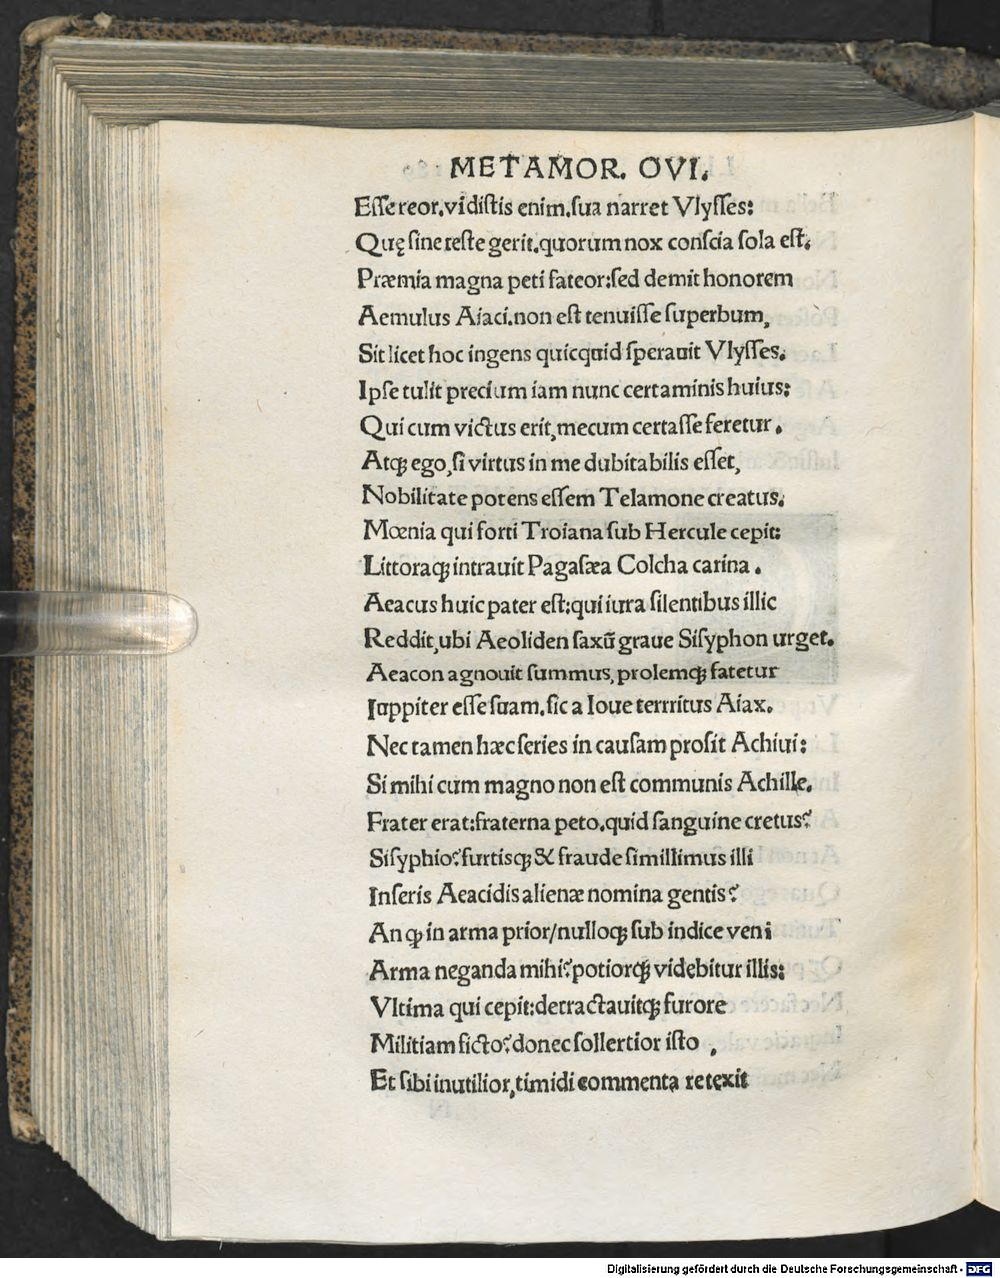 METAMOR. OVI.
Eſſe reor.vidiſtis enim.ſua narret Vlyſſes:
Quę ſine teſte gerit.quorum nox conſcia ſola eſt.
Præmia magna peti fateor:ſed demit honorem
Aemulus Aiaci.non eſt tenuiſſe ſuperbum,
Sit licet hoc ingens quicquid ſperauit Vlyſſes.
Ipſe tulit precium iam nunc certaminis huius:
Qui cum victus erit,mecum certaſſe feretur.
Atqꝫ ego,ſi virtus in me dubitabilis eſſet,
Nobilitate potens eſſem Telamone creatus.
Mœnia qui forti Troiana ſub Hercule cepit:
Littoraqꝫ intrauit Pagaſæa Colcha carina.
Aeacus huic pater eſt:qui iura ſilentibus illic
Reddit,ubi Aeoliden ſaxū graue Siſyphon urget.
Aeacon agnouit ſummus, prolemqꝫ fatetur
Iuppiter eſſe ſuam.ſic a Ioue terrritus Aiax.
Nec tamen hæc ſeries in cauſam proſit Achiui:
Si mihi cum magno non eſt communis Achille.
Frater erat:fraterna peto.quid ſanguine cretus?
Siſyphio?furtisqꝫ & fraude ſimillimus illi
Inſeris Aeacidis alienæ nomina gentis?
An ꝙ in arma prior/nulloqꝫ ſub indice veni
Arma neganda mihi?potiorqꝫ videbitur illis:
Vltima qui cepit:detractauitqꝫ furore
Militiam ficto?donec ſollertior iſto ,
Et ſibi inutilior,timidi commenta retexit
Digitalisierung gefördert durch die Deutsche Forschungsgemeinschaft - DFG